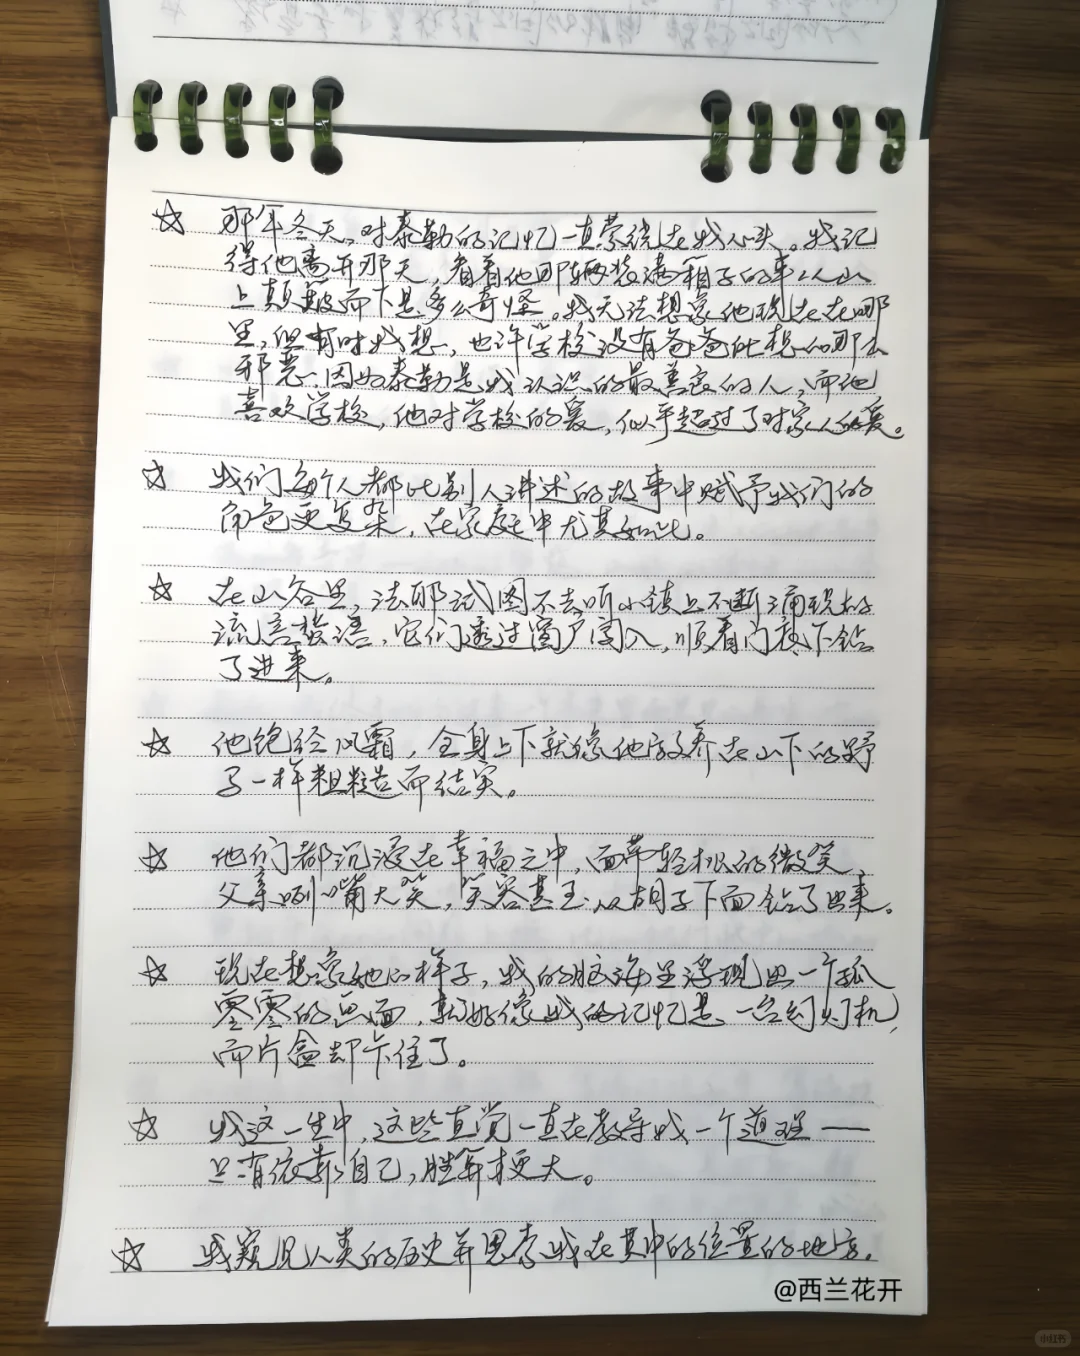 ☆ 那年冬天,对泰勒的记忆一直萦绕在我心头。我记
得他离开那天,看着他那辆装满箱子的车从山
上颠簸而下是多么奇怪。我无法想象他现在在哪
里,但有时我想,也许学校没有爸爸所想的那么
邪恶,因为泰勒是我认识的最善良的人,而他
喜欢学校,他对学校的爱,似乎超过了对家人的爱。
☆ 我们每个人都比别人讲述的故事中赋予我们的
角色更复杂,在家庭中尤其如此。
☆ 在山谷里,法耶试图不去听小镇上不断涌现的
流言蜚语,它们透过窗户闯入,顺着门缝下钻
了进来。
☆ 他饱经风霜,全身上下就像他放养在山下的野
马一样粗糙而结实。
☆ 他们都沉浸在幸福之中,面带轻松的微笑,
父亲咧嘴大笑,笑容甚至从胡子下面钻了出来。
☆ 现在想象她的样子,我的脑海里浮现出一个孤
零零的画面,就好像我的记忆是一台幻灯机,
而片盒却卡住了。
☆ 我这一生中,这些直觉一直在教导我一个道理——
只有依靠自己,胜算才更大。
☆ 我窥见人类的历史并思索我在其中的位置的地方。
@西兰花开
小红书